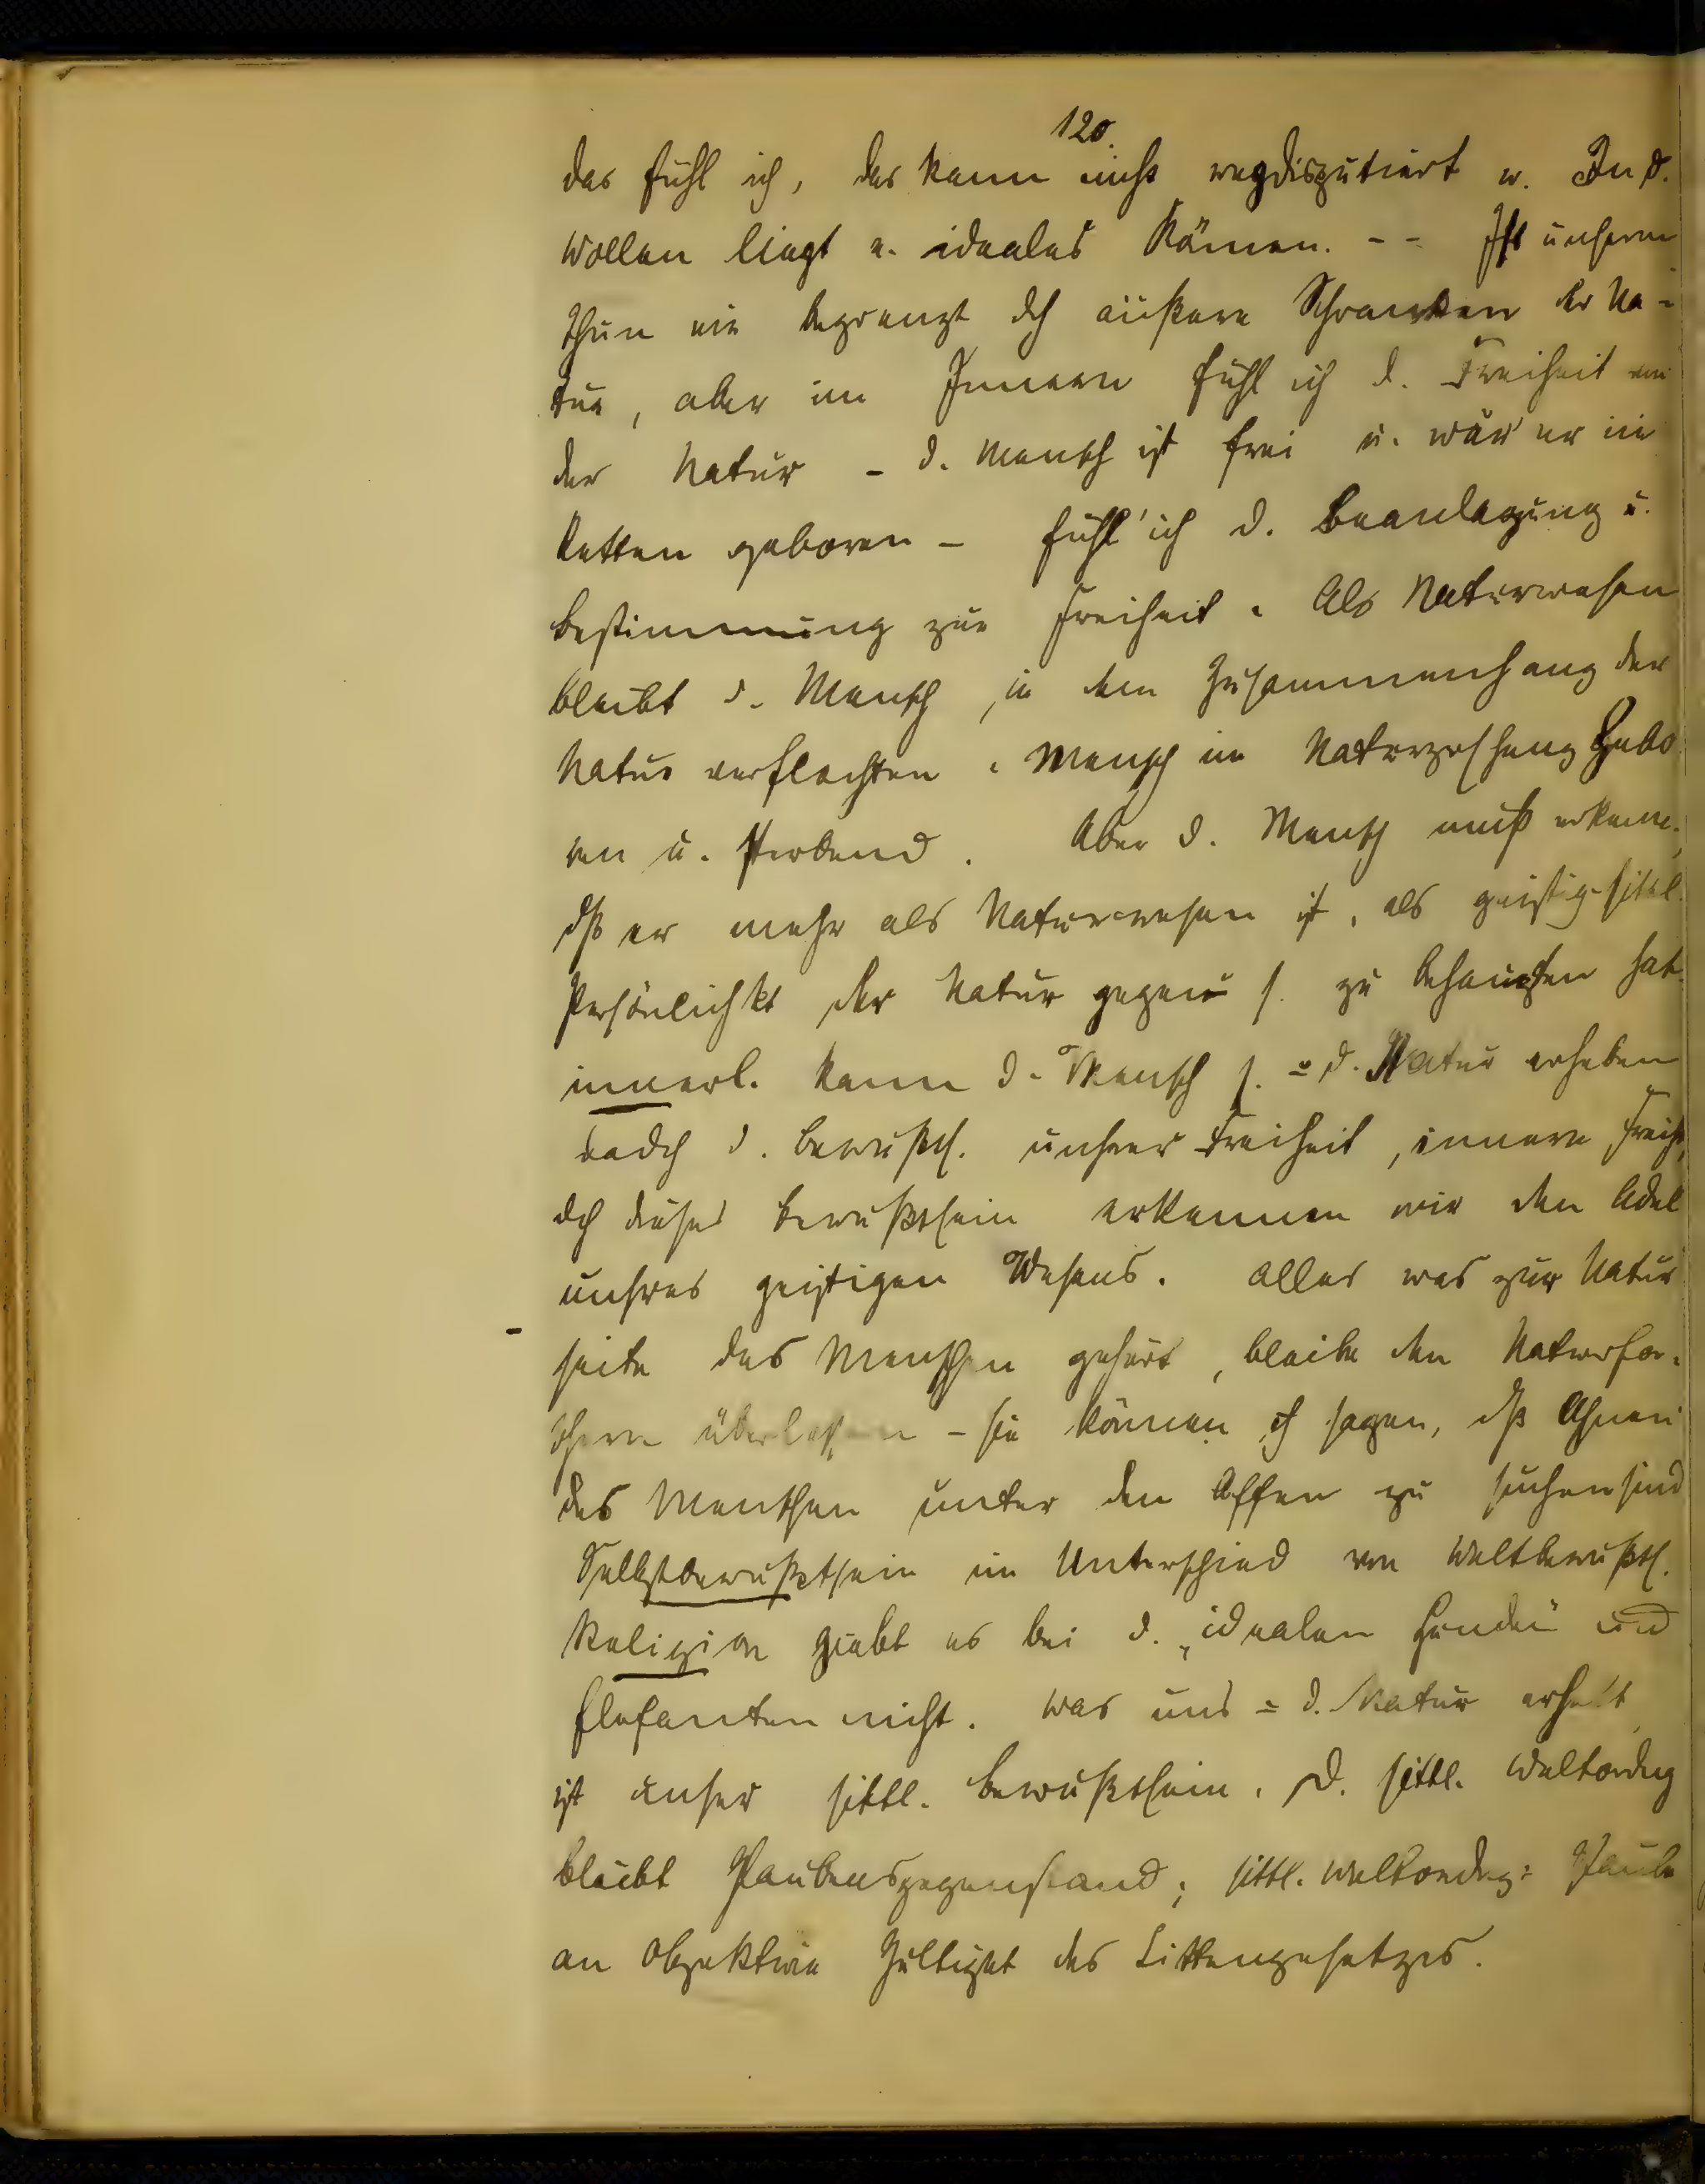 120.
das fühl ich, das kann nicht wegdisputiert w. In d.
Wollen liegt e. ideales Können. -- Ist unserm
Thun ein begrenzt dch äußere Schranken der Na-
tur, aber im Innern fühl ich d. Freiheit von
der Natur - d. Mensch ist frei u. wär' er in
Ketten geboren - fühl' ich d. Beanlagung u.
Bestimmung zur Freiheit. Als Naturwesen
bleibt d. Mensch in den Zusammenhang der
Natur verflochten. Mensch im Naturzushang Gebo
ren u. sterbend. Aber d. Mensch muß erkenn.
dß er mehr als Naturwesen ist, als geistig-sittl.
Persönlichkt der Natur gegenü s. zu behaupten hat.
innerl. kann d. Mensch s. ü d. Natur erheben
dadch d. Bewußts. unserer Freiheit, innere Freiht,
dch dieses Bewußtsein erkennen wir den Adel
unsres geistigen Wesens. Alles was zur Natur
seite des Menschen gehört, bleibe den Naturfor-
schern überlassen - sie können sagen, dß Ahnen
des Menschen unter den Affen zu suchen sind
Selbstbewußtsein im Unterschied von Weltbewußts.
Religion giebt es bei d. "idealen Hunden" und
Elefanten nicht. Was uns ü d. Natur erhebt
ist unser sittl. Bewußtsein. D. sittl. Weltordng
bleibt Glaubensgegenstand; sittl. Weltordng: Glaube
an objektive Gültigkt des Sittengesetzes.